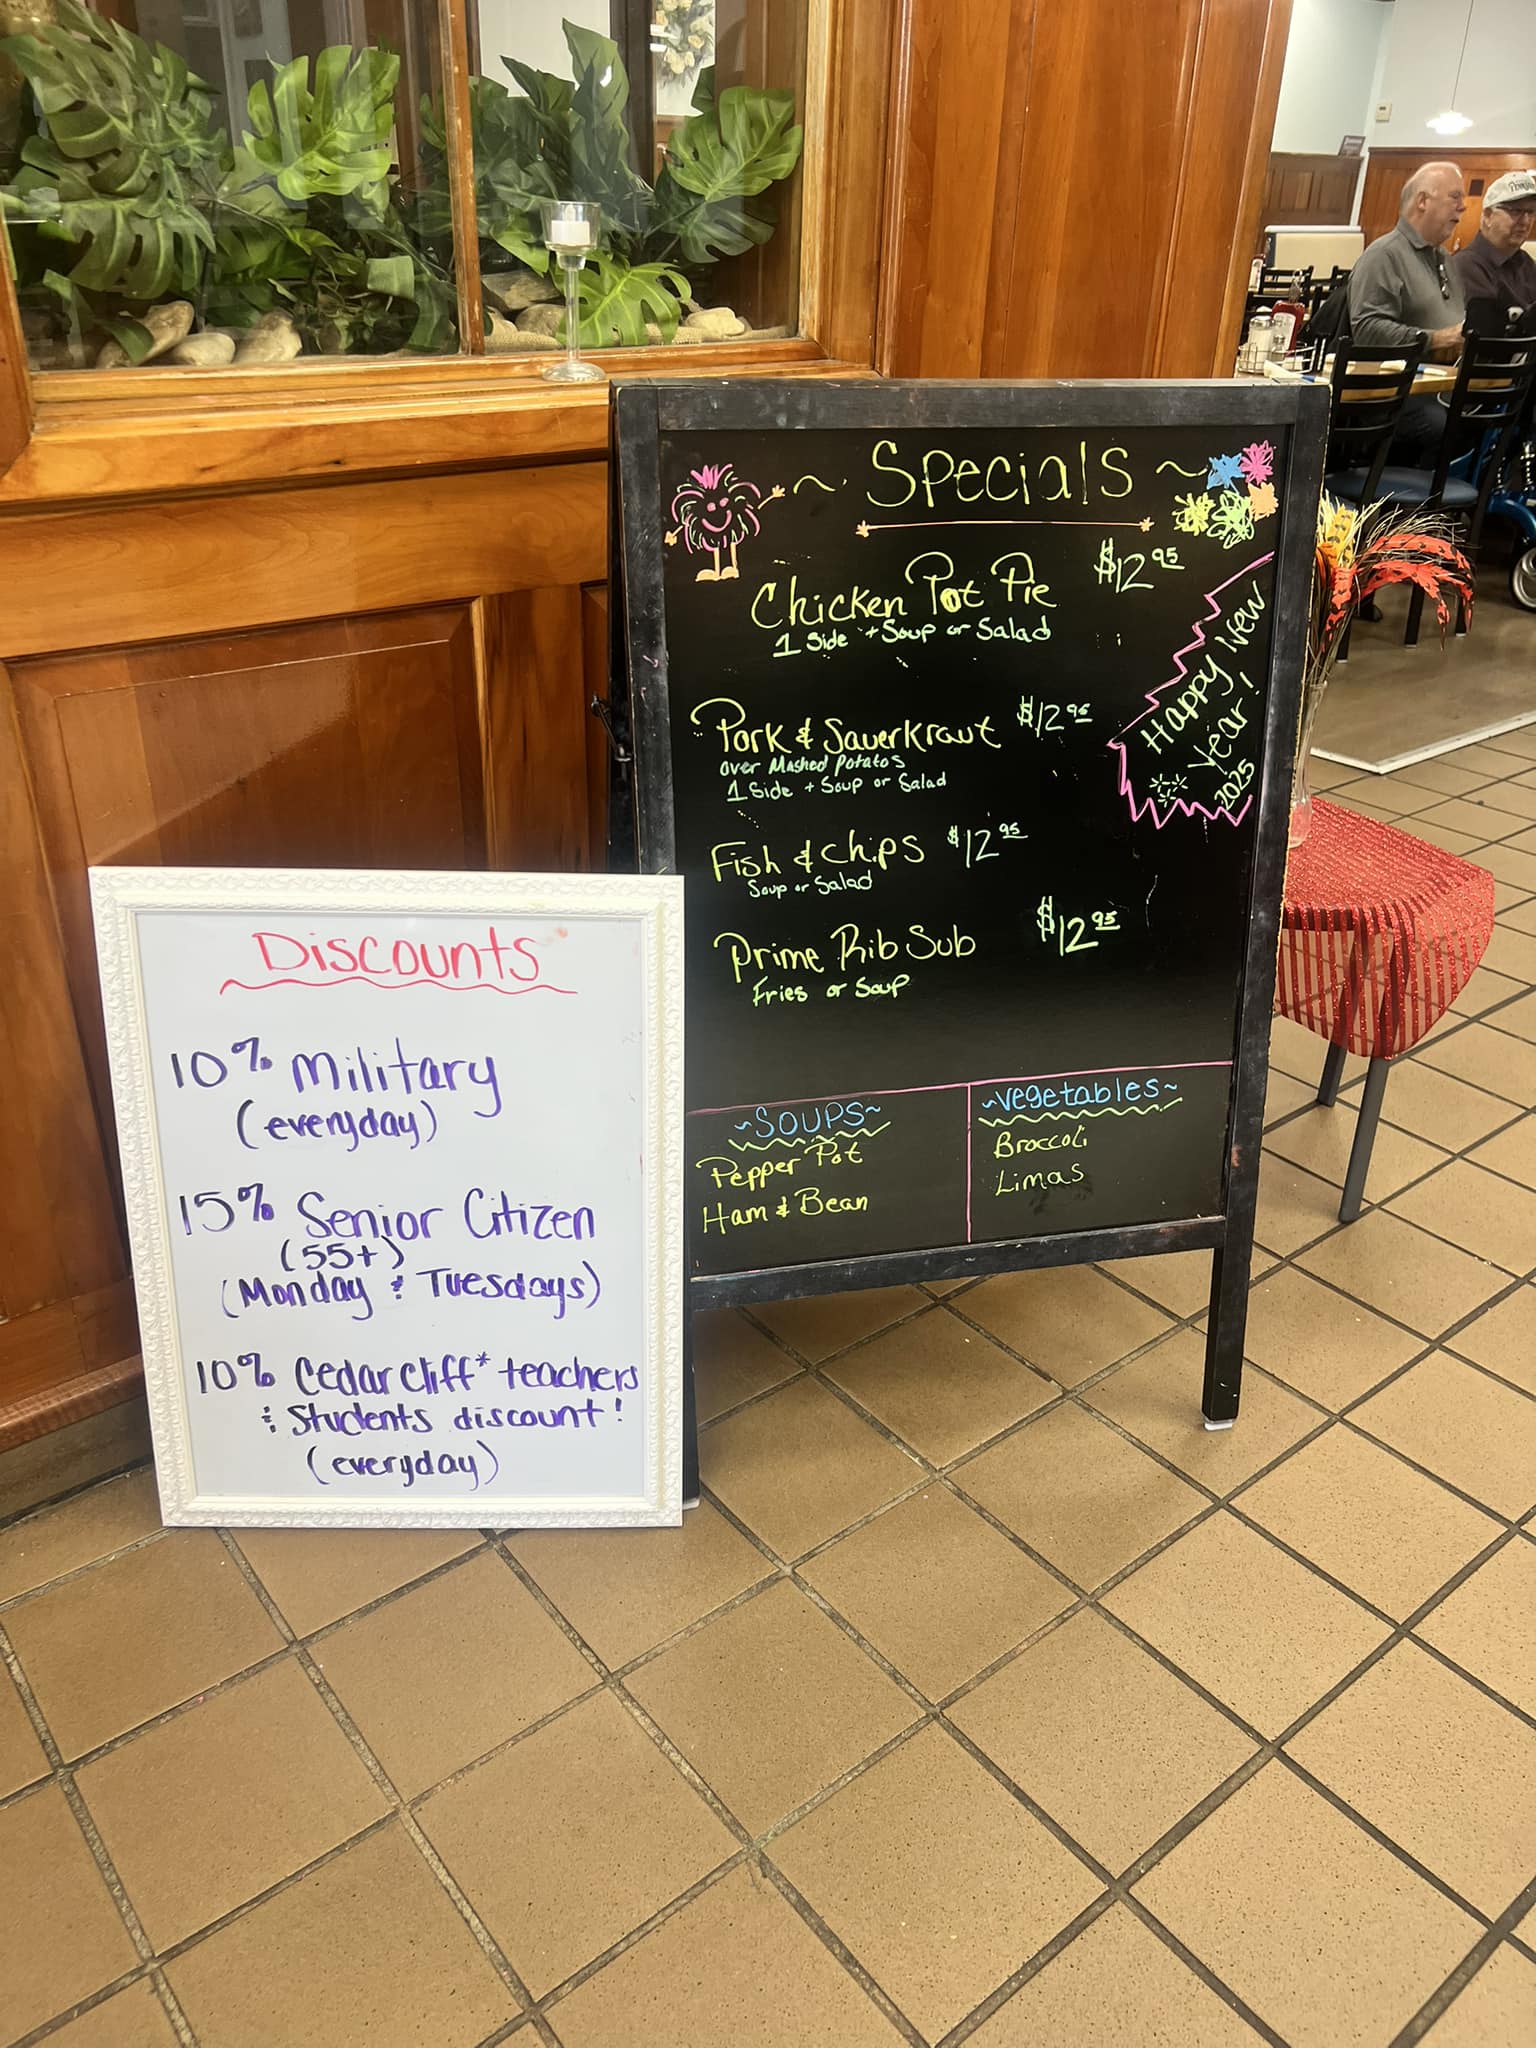 ~ Specials ~
Chicken Pot Pie $12.95
1 Side + Soup or Salad
Pork & Sauerkraut $12.95
over Mashed Potatos
1 Side + Soup or Salad
Fish & Chips $12.95
Soup or Salad
Prime Rib Sub $12.95
Fries or Soup
Happy New
Year!
2025
~SOUPS~
Pepper Pot
Ham & Bean
~Vegetables~
Broccoli
Limas
Discounts
10% Military
(everyday)
15% Senior Citizen
(55+)
(Monday & Tuesdays)
10% Cedar Cliff* teachers
& Students discount!
(everyday)